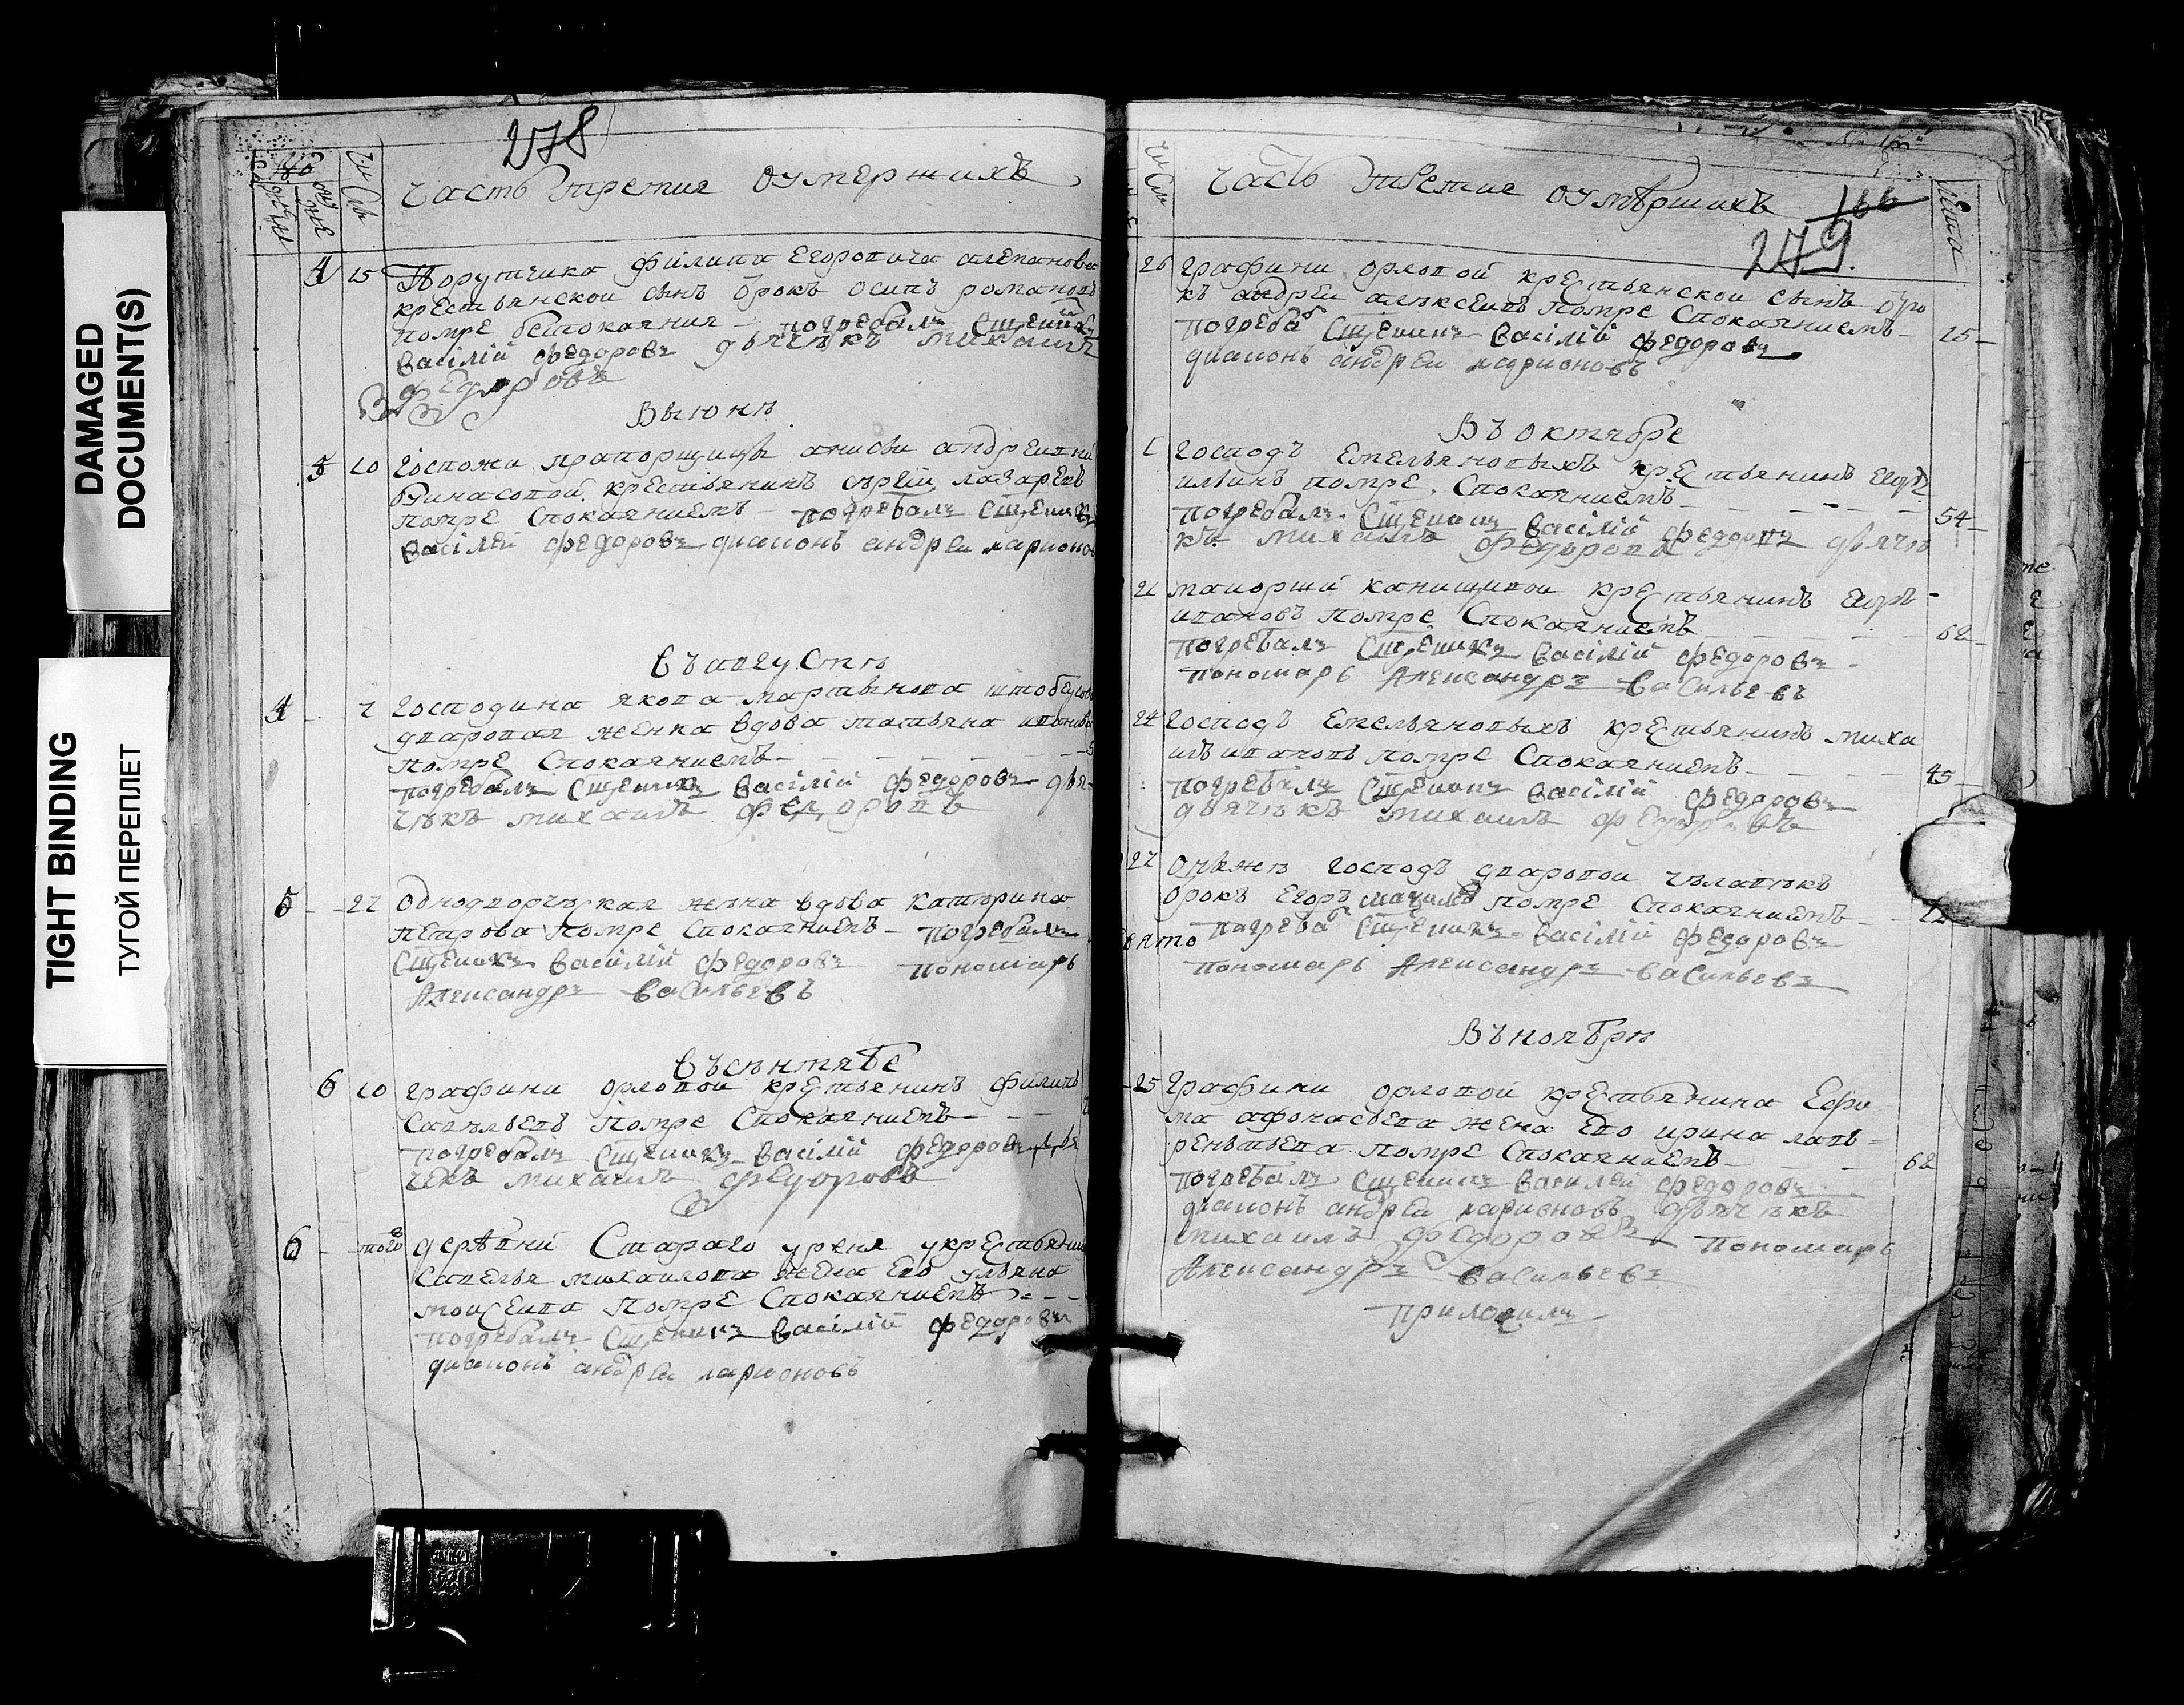 DAMAGED
DOCUMENT(S)
TIGHT BINDING
ТУГОЙ ПЕРЕПЛЕТ
278
часть третия оумершихъ
4 15 Порутчика филипа Егоровича
крестьянской сынъ отрокъ осипъ романовъ
помре беспокаяния погребалъ Сщенникъ
Василий федоровъ дьячекъ михаилъ
федоровъ
Выюне
5 10 Госпожи прапорщицы анисьи андреевны
крестьянинъ сергей лазаревъ
помре Спокаяниемъ погребалъ Сщенникъ
Василей федоровъ диаконъ андреи ларионовъ
Въ августе
4 2 Господина якова мартынова
дворовая женка вдова татьяна
помре Спокаяниемъ
погребалъ Сщенникъ Василий федоровъ дья
чекъ михаилъ федоровъ
5 27 Однодворческая жена вдова катерина
петрова помре Спокаяниемъ погребалъ
Сщенникъ Василий федоровъ пономарь
Александръ Васильевъ
Въ сентябе
6 10 графини орловой крестьянинъ филипъ
Савельевъ помре Спокаяниемъ
погребалъ Сщенникъ Василий федоровъ дья
чекъ михаилъ федоровъ
6 того деревни Стараго уреня у крестьянина
Савелья михаилова жена Ево ульяна
моисеива помре Спокаяниемъ
погребалъ Сщенникъ Василий федоровъ
диаконъ андреи ларионовъ
часть третия оумершихъ
166
279
лета
26 графини орловой крестьянской сынъ отро
къ андреи алексеивъ помре Спокаяниемъ
погребалъ Сщенникъ Василий федоровъ 15
диаконъ андреи ларионовъ
Въ октябре
Господъ Емельяновыхъ крестьянинъ
ильинъ помре Спокаяниемъ
погребалъ Сщенникъ Василий федоровъ дьяче 54
къ михаилъ федоровъ
21 маиорши канищивои крестьянинъ Егоръ
ивановъ помре Спокаяниемъ 62
погребалъ Сщенникъ Василий федоровъ
пономарь Александръ Васильевъ
24 Господъ Емельяновыхъ крестьянинъ миха
илъ ивановъ помре Спокаяниемъ 45
погребалъ Сщенникъ Василий федоровъ
дьячекъ михаилъ федоровъ
27 господъ дворовой человекъ
отрокъ Егоръ помре Спокаяниемъ
погребалъ Сщенникъ Василий федоровъ
пономарь Александръ Васильевъ
Въ ноябре
25 Графини орловой крестьянина Ефи
ма афонасьева жена Ево ирина лавъ
реньтьева помре Спокаяниемъ 62
погребалъ Сщенникъ Василей федоровъ
диаконъ андреи ларионовъ дьячекъ
михаилъ федоровъ пономарь
Александръ Васильевъ
приложилъ